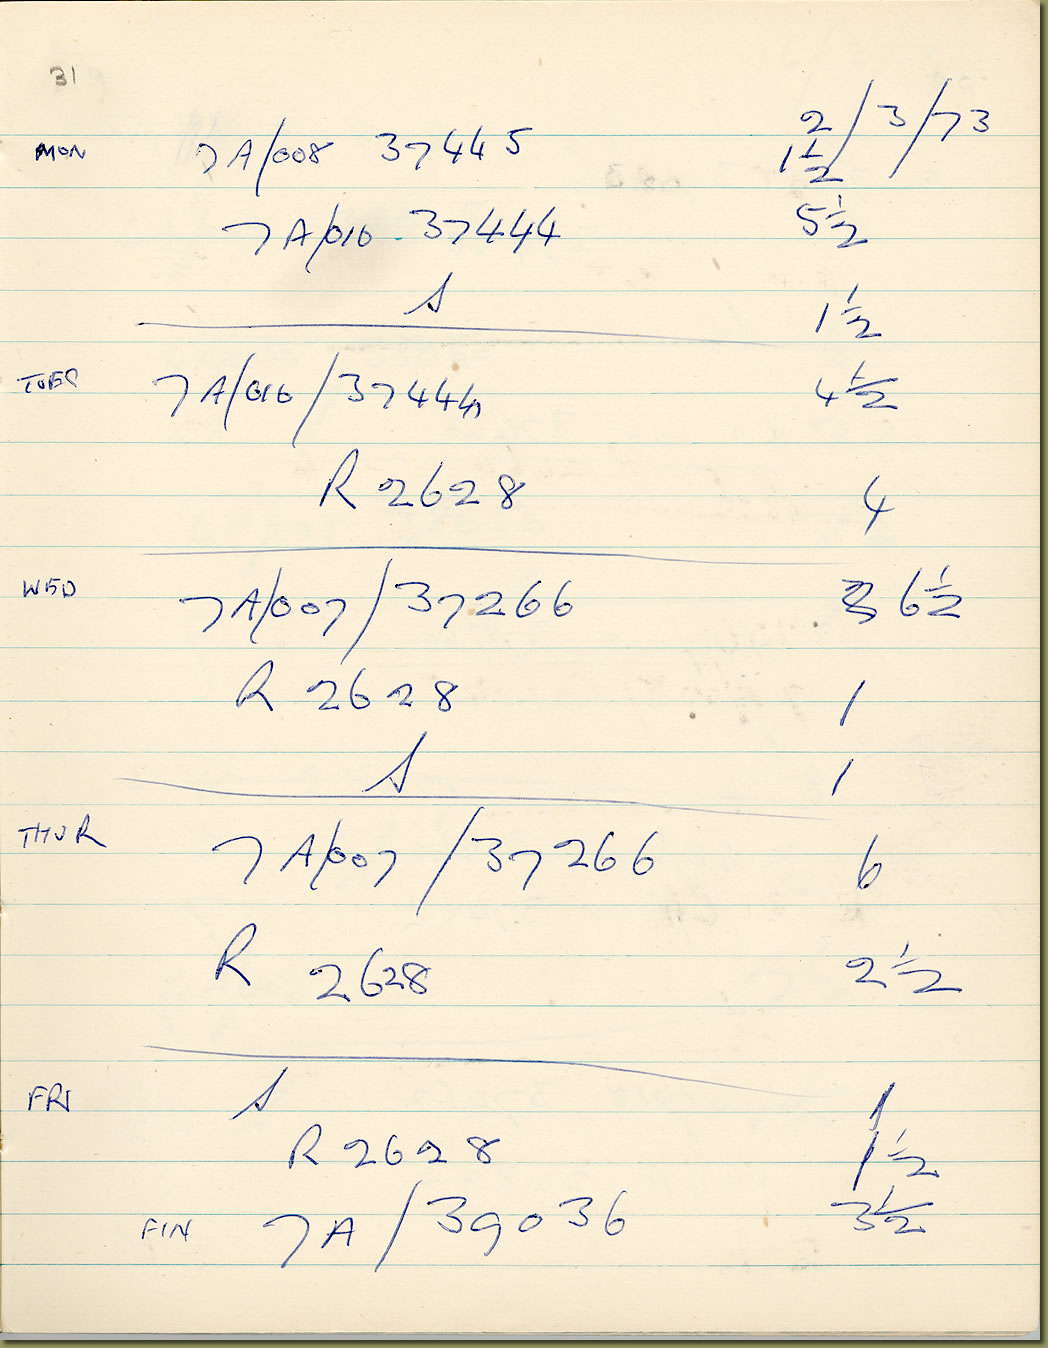 31
2/3/73
MON 7A/008 37445 1½
7A/010 37444 5½
S 1½
TUES 7A/010/37444 4½
R 2628 4
WED 7A/007/37266 6½
R 2628 1
S 1
THUR 7A/007/37266 6
R 2628 2½
FRI S 1
R 2628 1½
FIN 7A/39036 3½